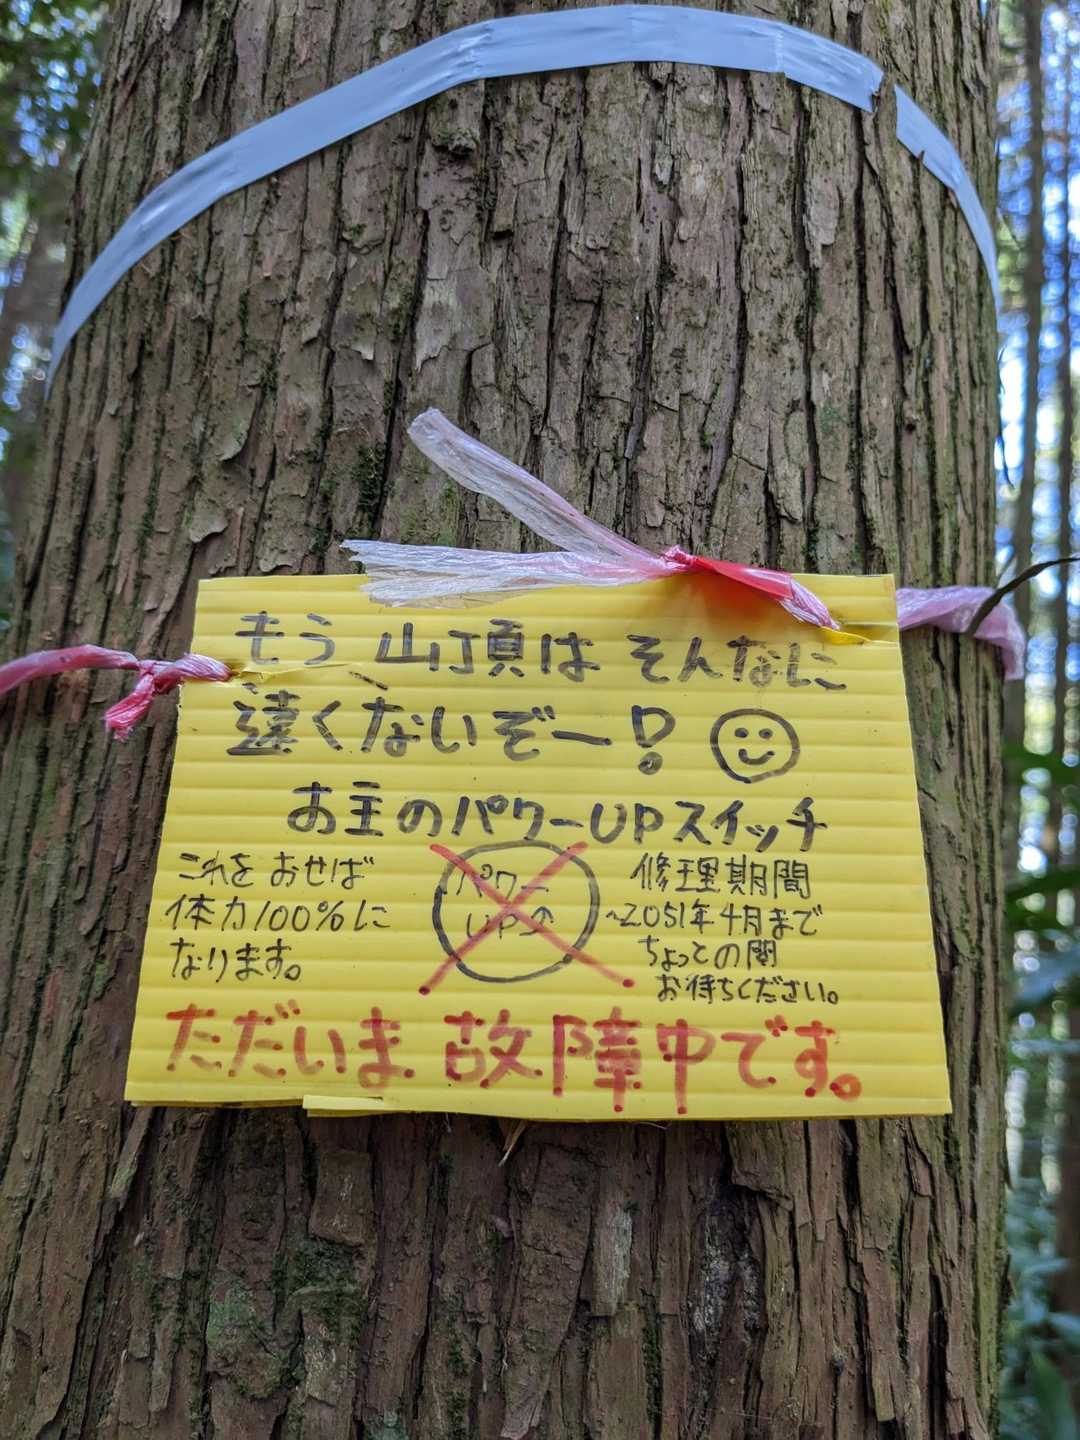 もう山頂はそんなに
遠くないぞー!
お主のパワーUPスイッチ
これをおせば
体力100%に
なります。
パワー
UP↑
修理期間
~2051年4月まで
ちょっとの間
お待ちください。
ただいま故障中です。